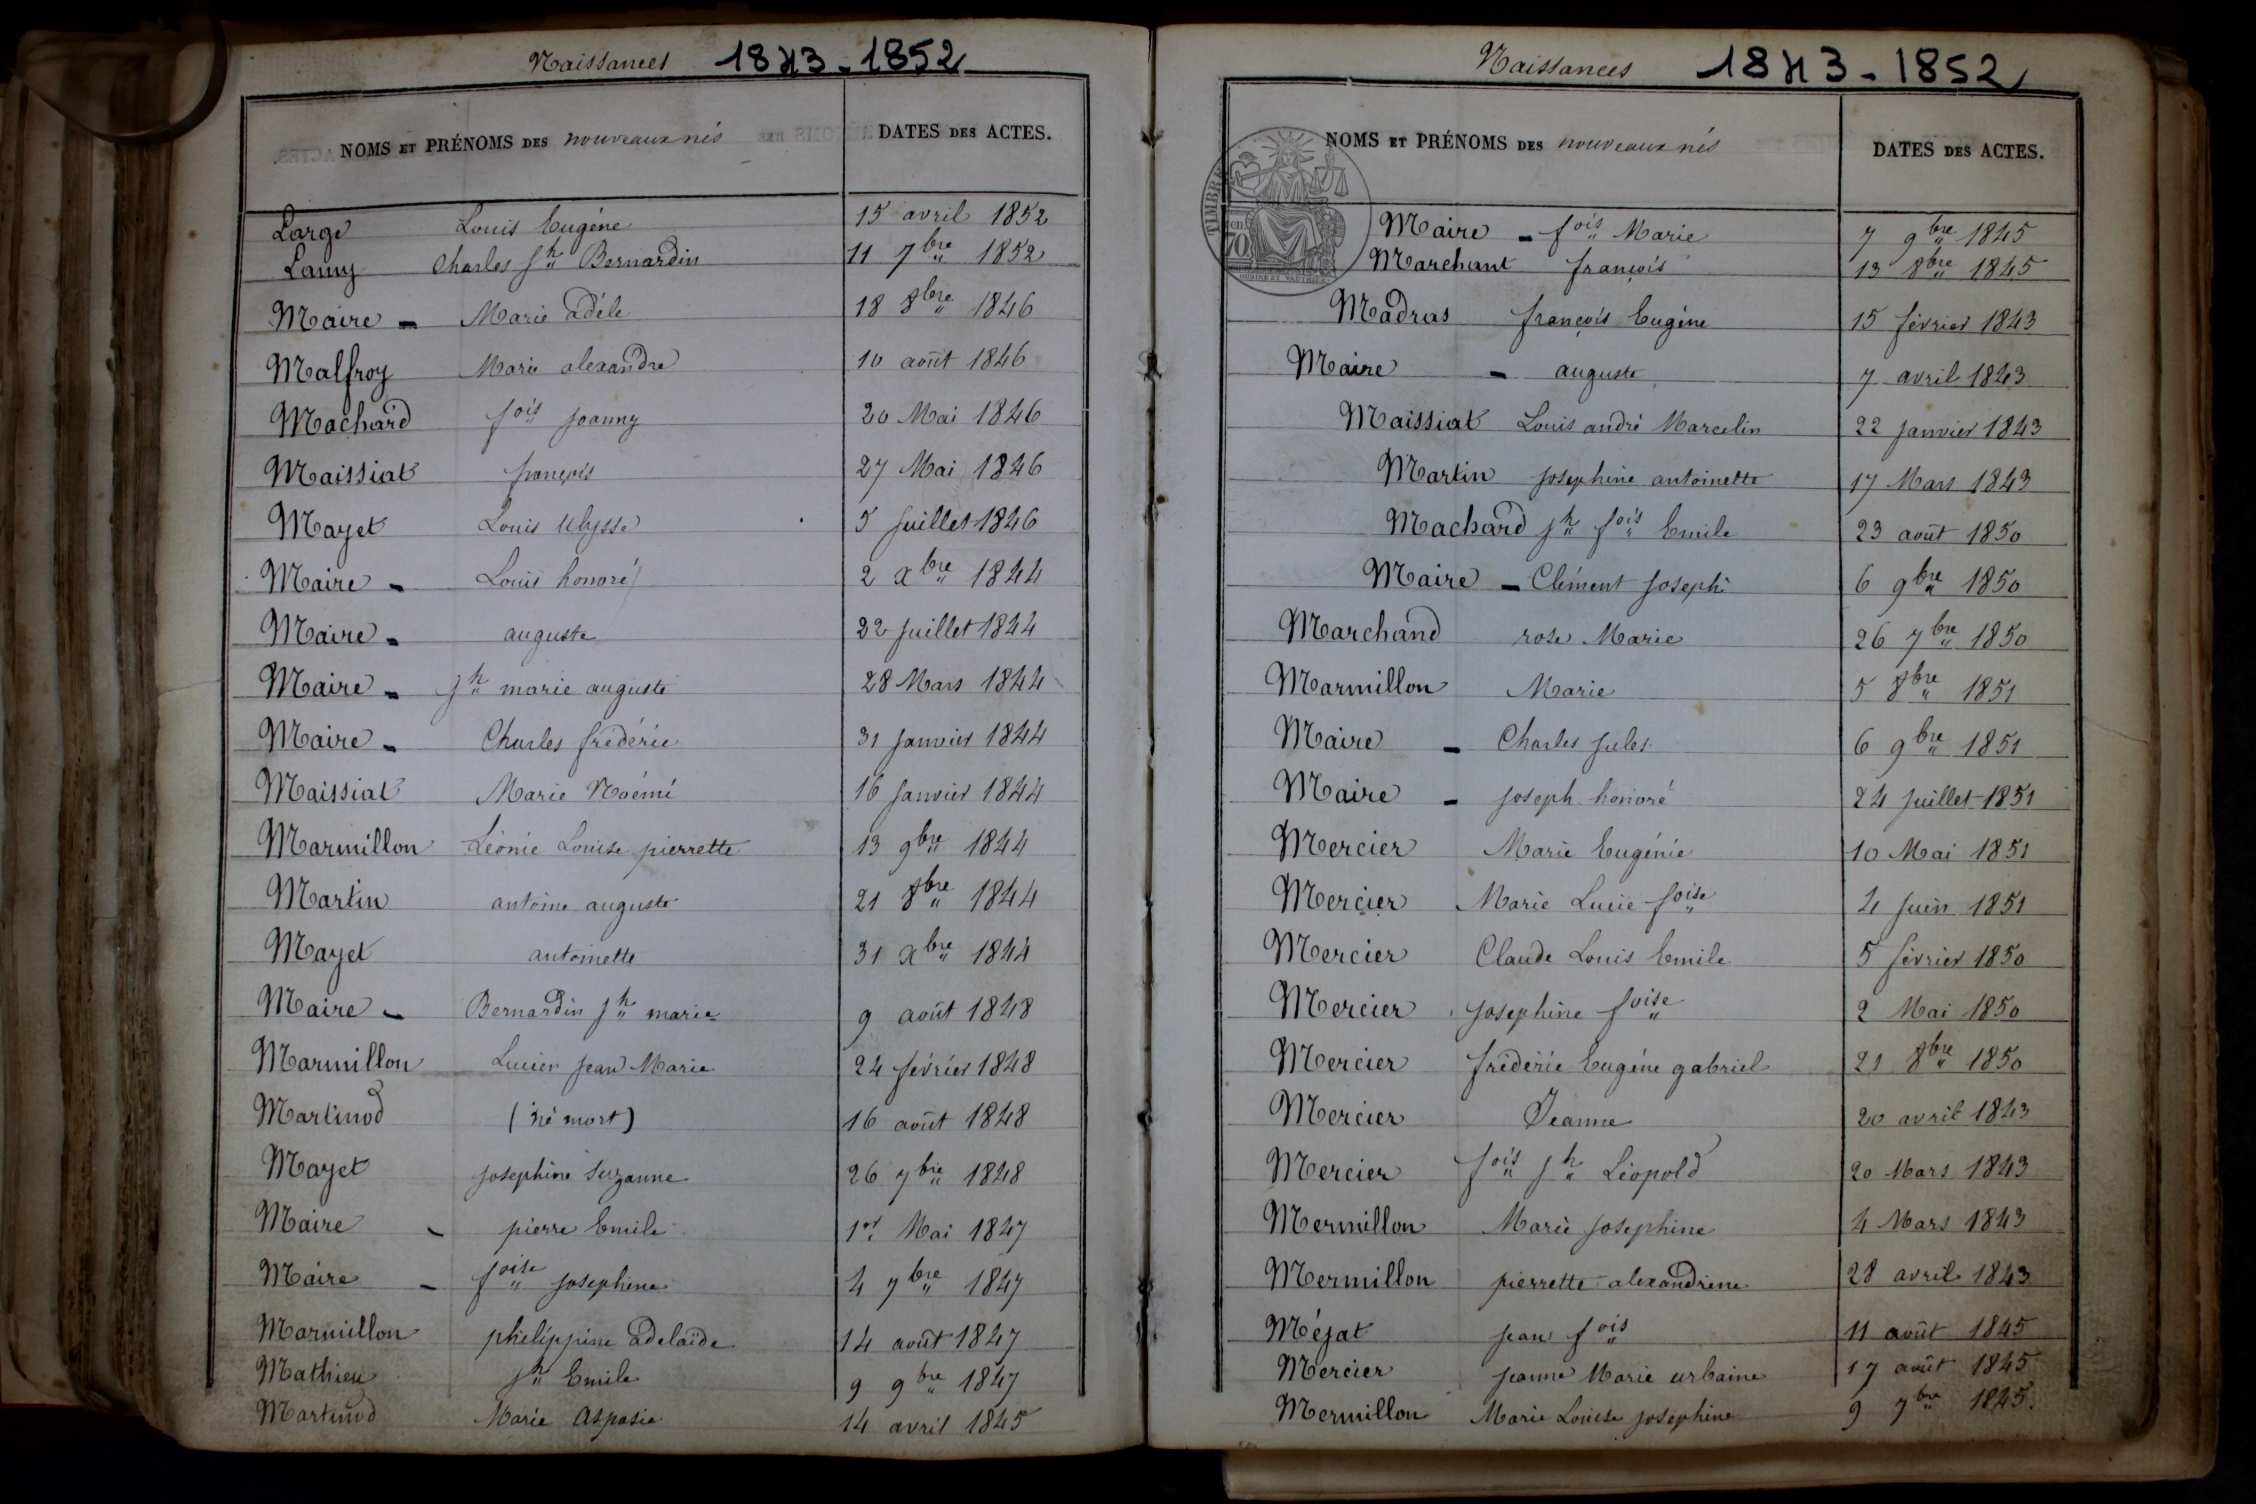 Naissances 1843-1852
NOMS ET PRÉNOMS DES nouveaux nés DATES DES ACTES.
Large Louis Eugène 15 avril 1852
Lamy Charles Jh Bernardin 11 7bre 1852
Maire - Marie adèle 18 8bre 1846
Malfroy Marie alexandre 10 août 1846
Machard fois Joanny 20 Mai 1846
Maissiat françois 27 Mai 1846
Mayet Louis Ulysse 5 Juillet 1846
Maire - Louis honoré 2 Xbre 1844
Maire - auguste 22 Juillet 1844
Maire - Jh marie auguste 28 Mars 1844
Maire - Charles frédéric 31 Janvier 1844
Maissiat Marie Noémi 16 Janvier 1844
Marmillon Léonie Louise pierrette 13 9bre 1844
Martin antoine auguste 21 8bre 1844
Mayet antoinette 31 Xbre 1844
Maire - Bernardin Jh marie 9 août 1848
Marmillon Lucien Jean Marie 24 février 1848
Martinod (né mort) 16 août 1848
Mayet Josephine Suzanne 26 7bre 1848
Maire - pierre Emile 1er Mai 1847
Maire - foise Josephine 4 7bre 1847
Marmillon philippine adelaïde 14 août 1847
Mathieu Jh Emile 9 9bre 1847
Martinod Marie Aspasie 14 avril 1845
Naissances 1843-1852
NOMS ET PRÉNOMS DES nouveaux nés DATES DES ACTES.
TIMBRE
70
Maire - fois Marie 7 9bre 1845
Marchant françois 13 8bre 1845
Madras françois Eugène 15 février 1843
Maire - auguste 7 avril 1843
Maissiat Louis andré Marcelin 22 Janvier 1843
Martin Josephine antoinette 17 Mars 1843
Machard Jh fois Emile 23 août 1850
Maire - Clément Joseph 6 9bre 1850
Marchand rose Marie 26 7bre 1850
Marmillon Marie 5 8bre 1851
Maire - Charles Jules 6 9bre 1851
Maire - Joseph honoré 24 Juillet 1851
Mercier Marie Eugénie 10 Mai 1851
Mercier Marie Lucie foise 4 Juin 1851
Mercier Claude Louis Emile 5 février 1850
Mercier Josephine foise 2 Mai 1850
Mercier frédéric Eugène gabriel 21 8bre 1850
Mercier Jeanne 20 avril 1843
Mercier fois Jh Léopold 20 Mars 1843
Mermillon Marie Josephine 4 Mars 1843
Mermillon pierrette alexandrine 28 avril 1843
Méjat Jean fois 11 août 1845
Mercier Jeanne Marie urbaine 17 août 1845
Mermillon Marie Louise Josephine 9 7bre 1845